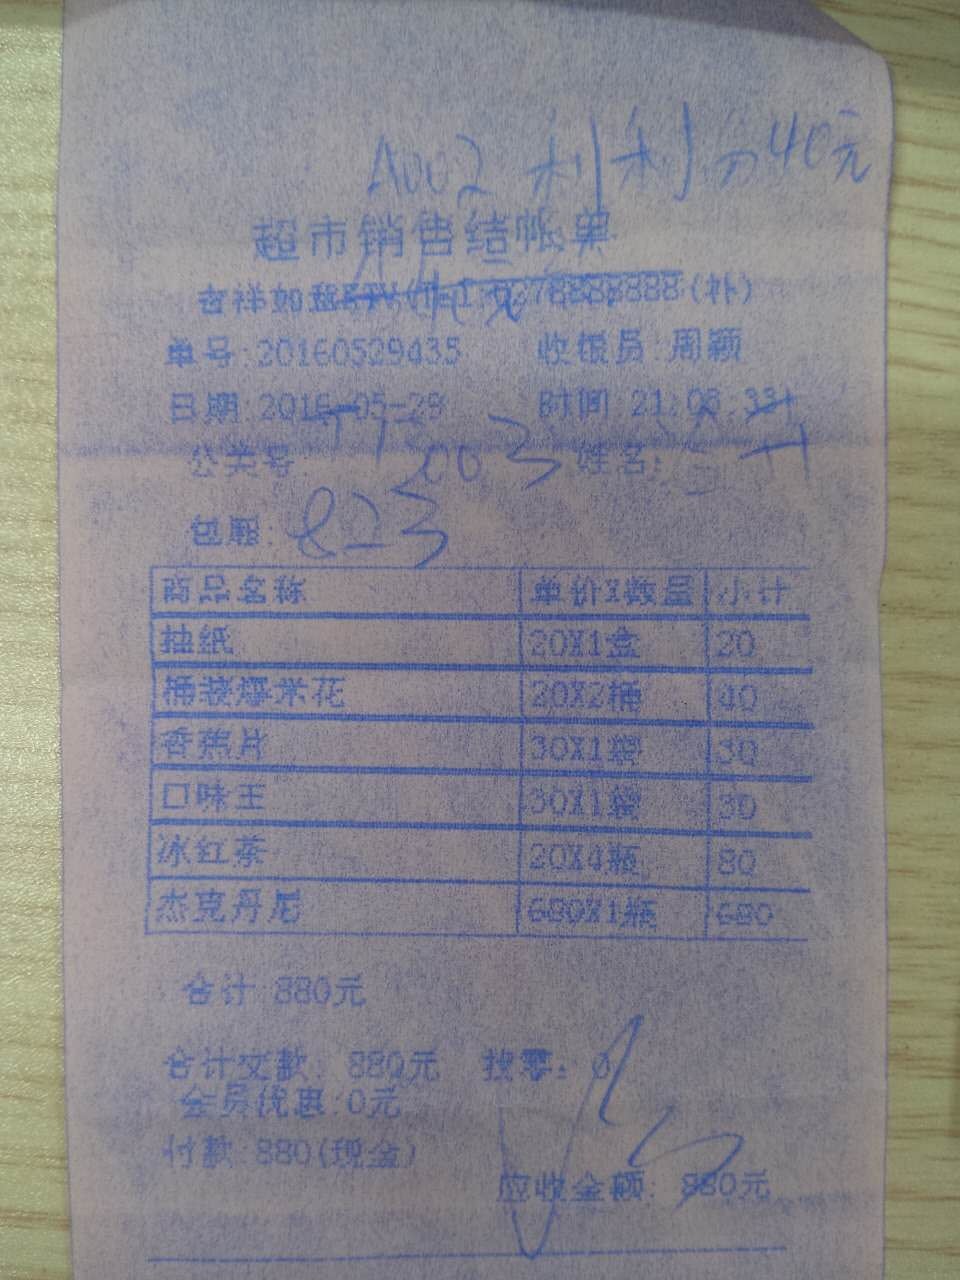 A002 利利 40元
超市销售结帐单
吉祥如意KTV 0278888888(补)
单号:20160529435 收银员:周颖
日期:2016-05-29 时间:21:08:33
公关号 003 姓名:
包厢: 823
商品名称 单价X数量 小计
抽纸 20X1盒 20
桶装爆米花 20X2桶 40
香蕉片 30X1袋 30
口味王 30X1袋 30
冰红茶 20X4瓶 80
杰克丹尼 680X1瓶 680
合计:880元
合计交款: 880元 找零: 0
会员优惠:0元
付款:880(现金)
应收金额: 880元